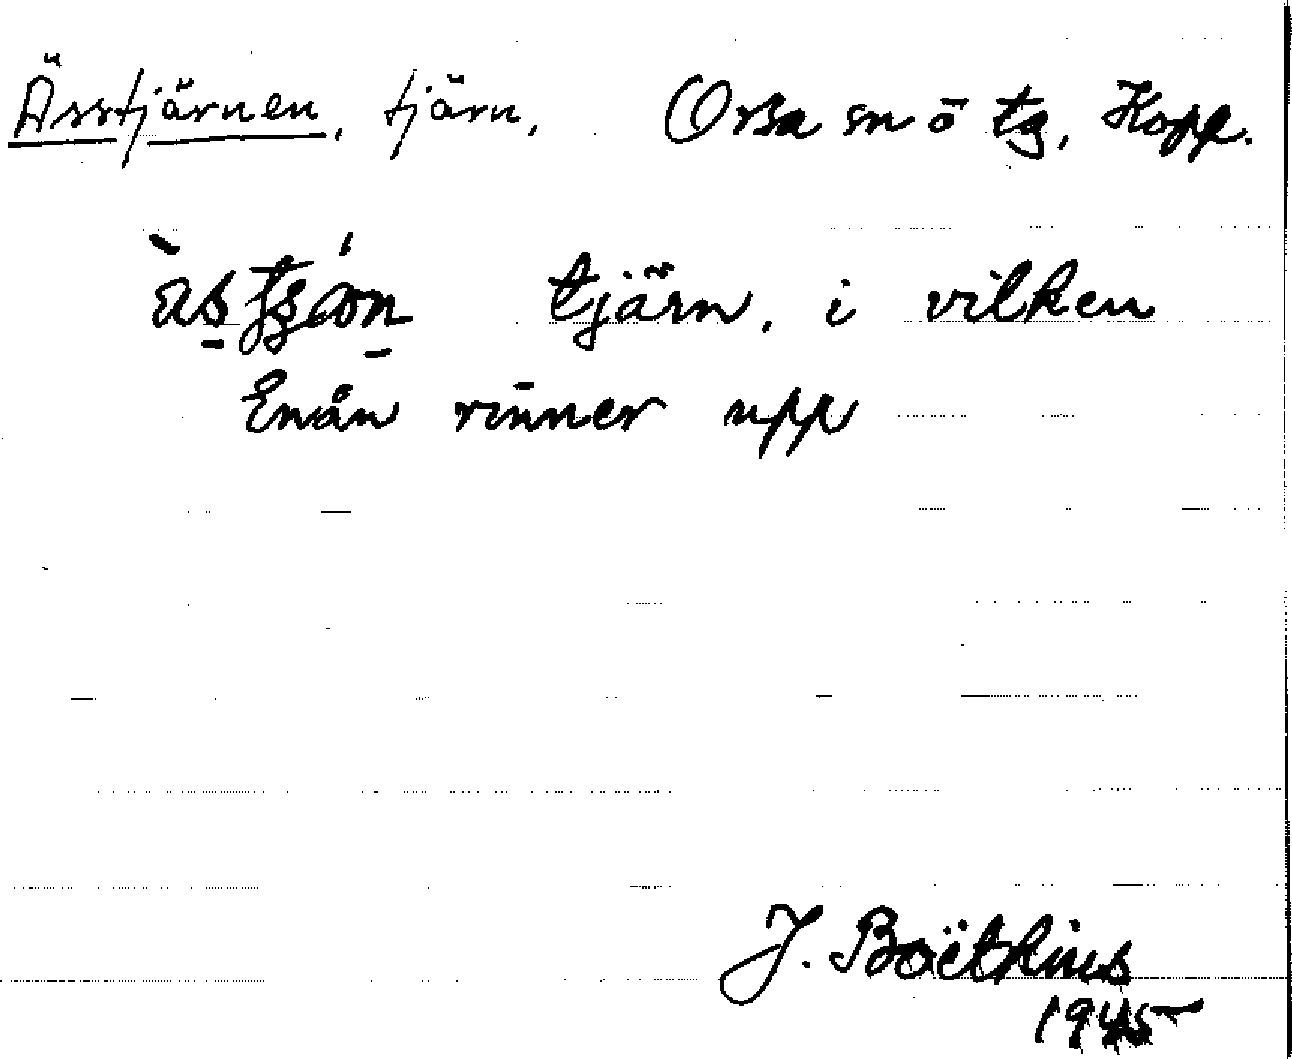 Ässtjärnen, tjärn, Orsa sn ö tg, Kopp.
tjärn, i vilken
Enån rinner upp
J. Boëthius
1945